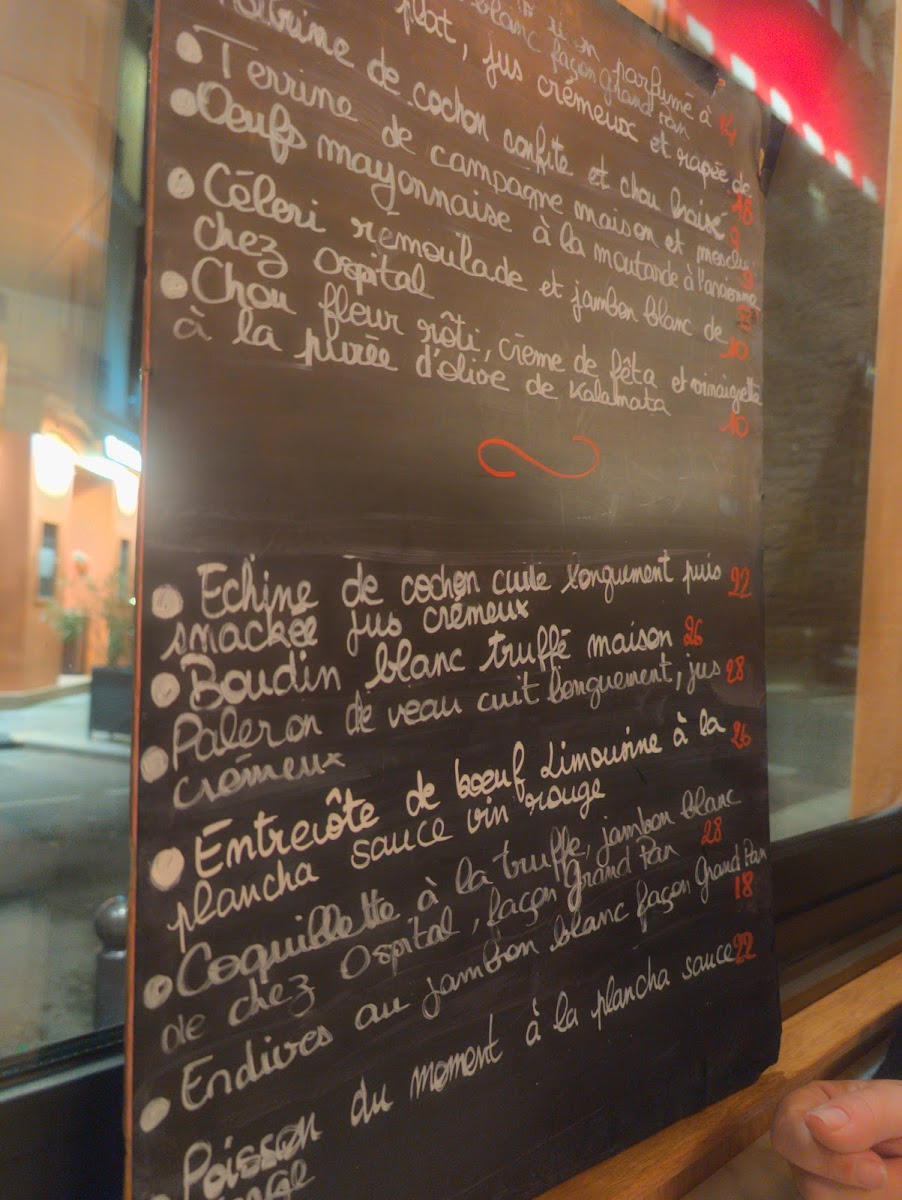 parfumé à
blanc façon grand Pan 14
plat, jus crémeux et rapée de
de cochon confite et chou braisé 18
• Terrine de campagne maison et mesclun 9
• Oeufs mayonnaise à la moutarde à l'ancienne 9
• Céleri rémoulade et jambon blanc de
chez Ospital 10
• Chou fleur rôti, crème de fêta et vinaigrette
à la purée d'olive de Kalamata 10
• Echine de cochon cuite longuement puis 22
snackée jus crémeux
• Boudin blanc truffé maison 26
• Paleron de veau cuit longuement, jus 28
crémeux
• Entrecôte de boeuf Limousine à la 26
plancha sauce vin rouge
• Coquillette à la truffe, jambon blanc
de chez Ospital, façon Grand Pan 28
• Endives au jambon blanc façon Grand Pan 18
• Poisson du moment à la plancha sauce 22